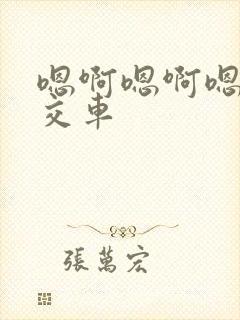 嗯啊嗯啊嗯
交車
張萬宏